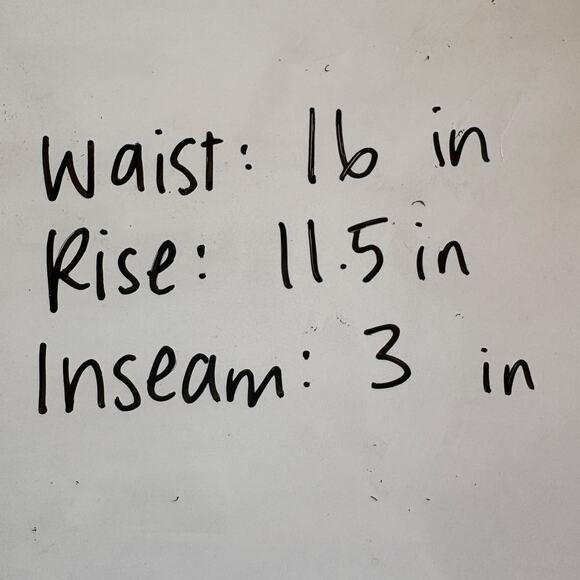 Waist: 16 in
Rise: 11.5 in
Inseam: 3 in